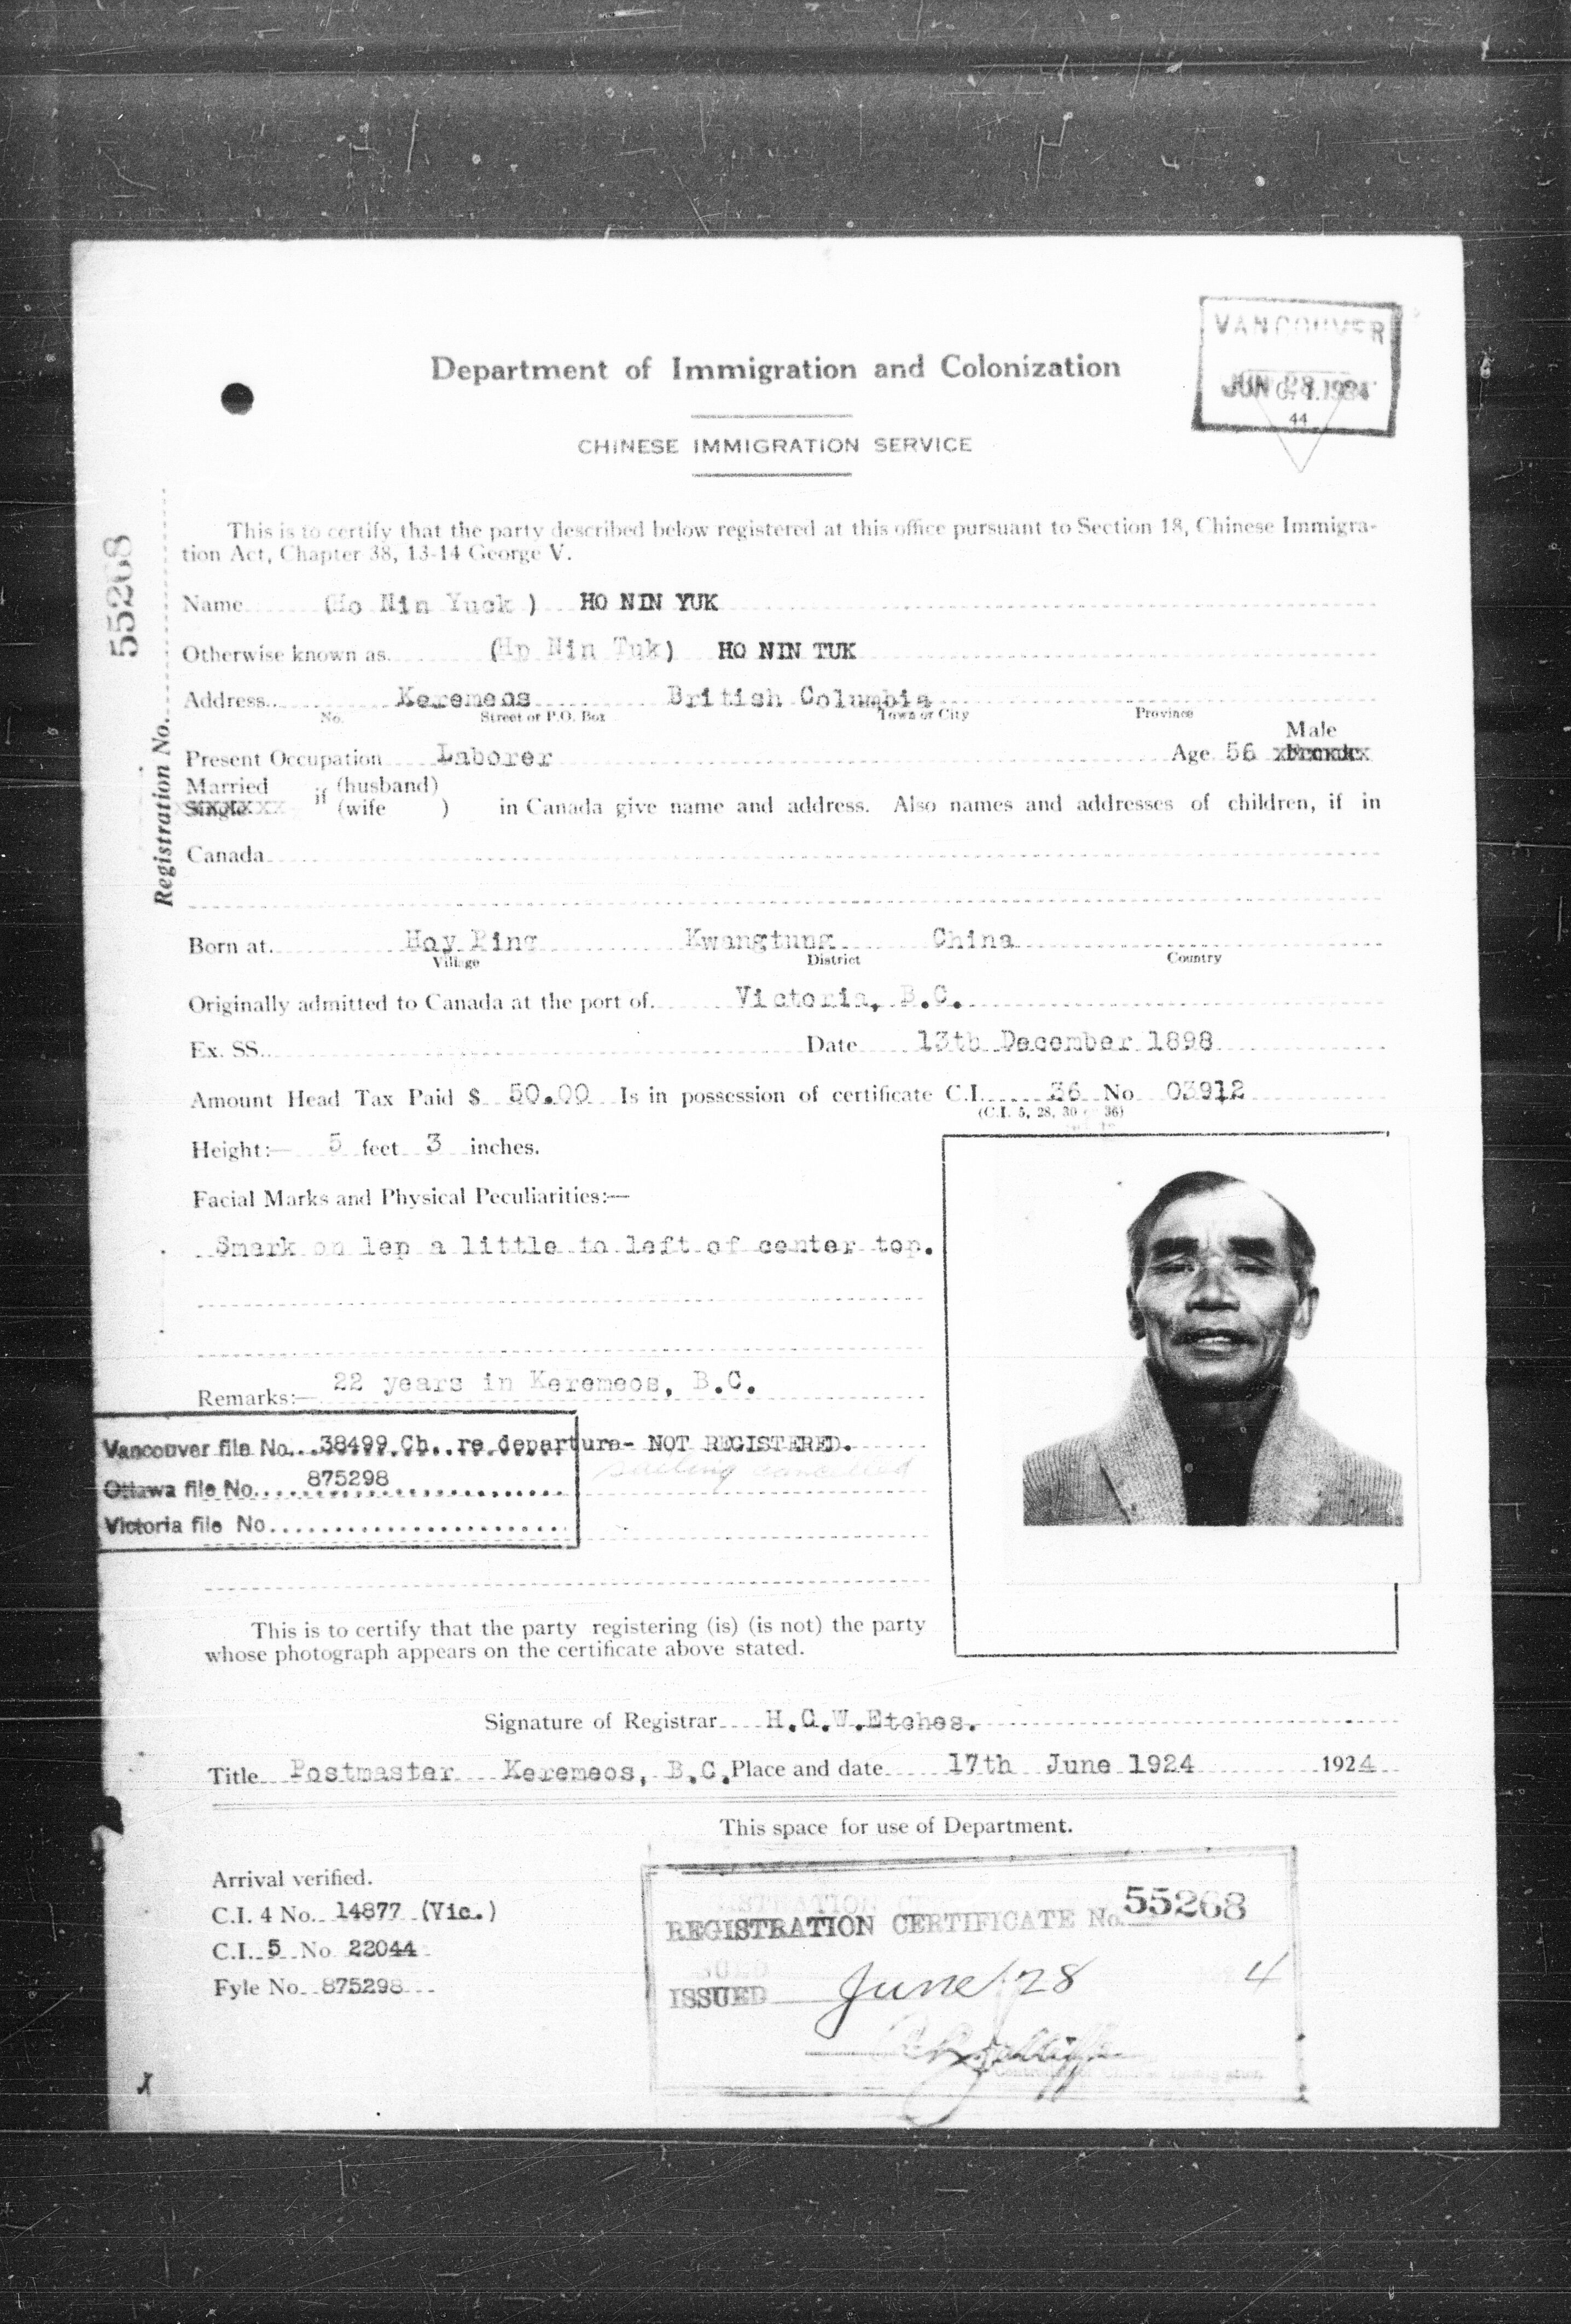 VANCOUVER
JUN 28 1924
44
Department of Immigration and Colonization
CHINESE IMMIGRATION SERVICE
This is to certify that the party described below registered at this office pursuant to Section 18, Chinese Immigra-
tion Act, Chapter 38, 13-14 George V.
Registration No. 55268
Name (Ho Nin Yuck ) HO NIN YUK
Otherwise known as. (Hp Nin Tuk) HO NIN TUK
Address.. Keremeos British Columbia
No. Street or P.O. Box Town or City Province
Male
Present Occupation Laborer Age 56
Married if (husband)
Single (wife ) in Canada give name and address. Also names and addresses of children, if in
Canada
Born at. Hoy Ping Kwangtung China
Village District Country
Originally admitted to Canada at the port of. Victoria, B.C.
Ex. SS. Date 13th December 1898
Amount Head Tax Paid $ 50.00 Is in possession of certificate C.I. 36 No 03912
(C.I. 5, 28, 30 or 36)
Height:— 5 feet 3 inches.
Facial Marks and Physical Peculiarities:—
Smark on lep a little to left of center top.
Remarks:— 22 years in Keremeos, B.C.
Vancouver file No. 38499 Ch. re departure- NOT REGISTERED.
sailing cancelled
Ottawa file No. 875298
Victoria file No.
This is to certify that the party registering (is) (is not) the party
whose photograph appears on the certificate above stated.
Signature of Registrar H.C.W.Etches.
Title Postmaster Keremeos, B.C. Place and date 17th June 1924 1924
This space for use of Department.
Arrival verified.
C.I. 4 No. 14877 (Vic.)
C.I. 5 No 22044
Fyle No. 875298
REGISTRATION CERTIFICATE No. 55268
ISSUED June 28 4
Controller of Chinese Immigration.